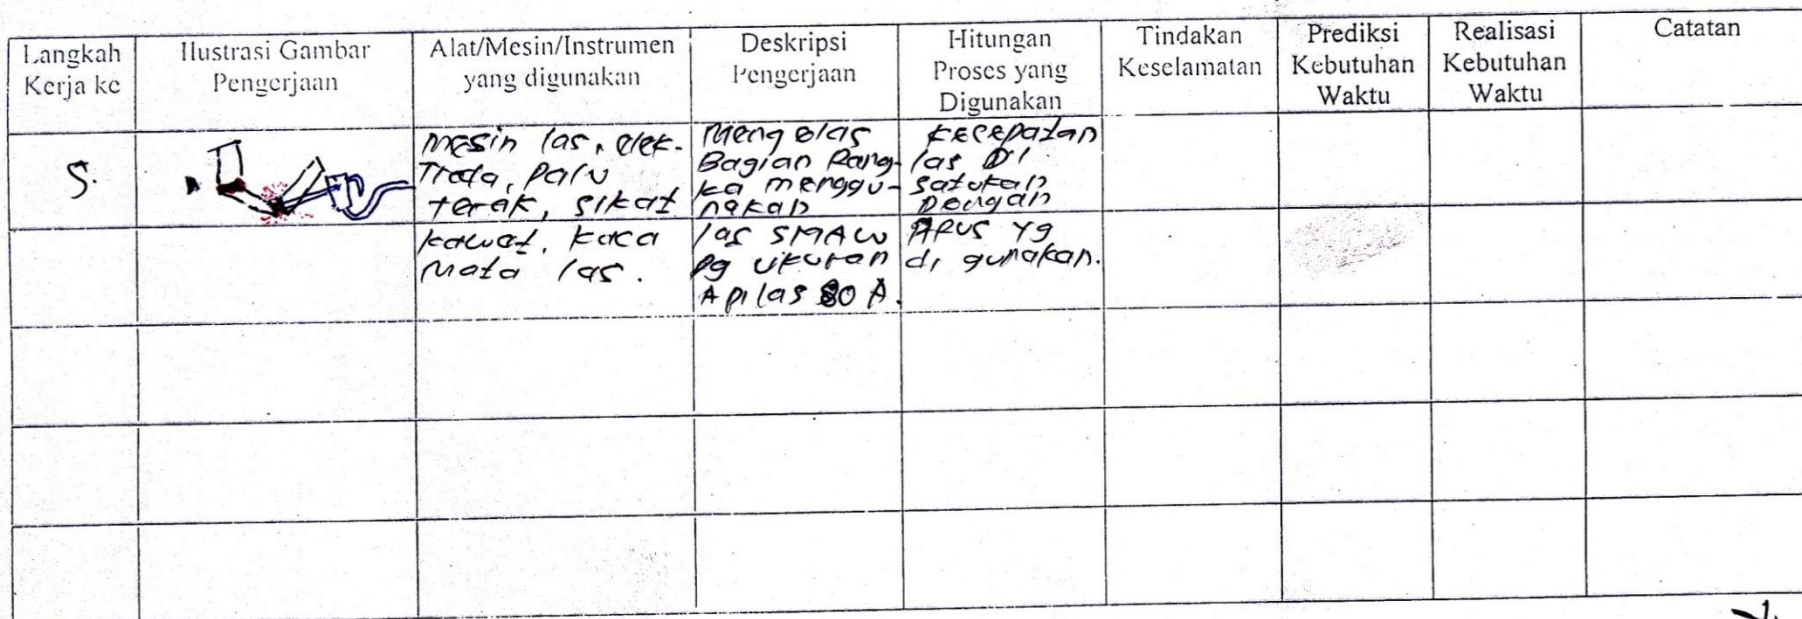 Langkah Kerja ke
Ilustrasi Gambar Pengerjaan
Alat/Mesin/Instrumen yang digunakan
Deskripsi Pengerjaan
Hitungan Proses yang Digunakan
Tindakan Keselamatan
Prediksi Kebutuhan Waktu
Realisasi Kebutuhan Waktu
Catatan
5.
Mesin las, elek-
Troda, Palu
terak, sikat
kawat, kaca
Mata las.
Meng elas
Bagian Rang-
ka menggu-
nakan
las SMAW
Dg ukuran
Api las 80 A.
kecepatan
las Di
satukan
Dengan
Arus yg
di gunakan.